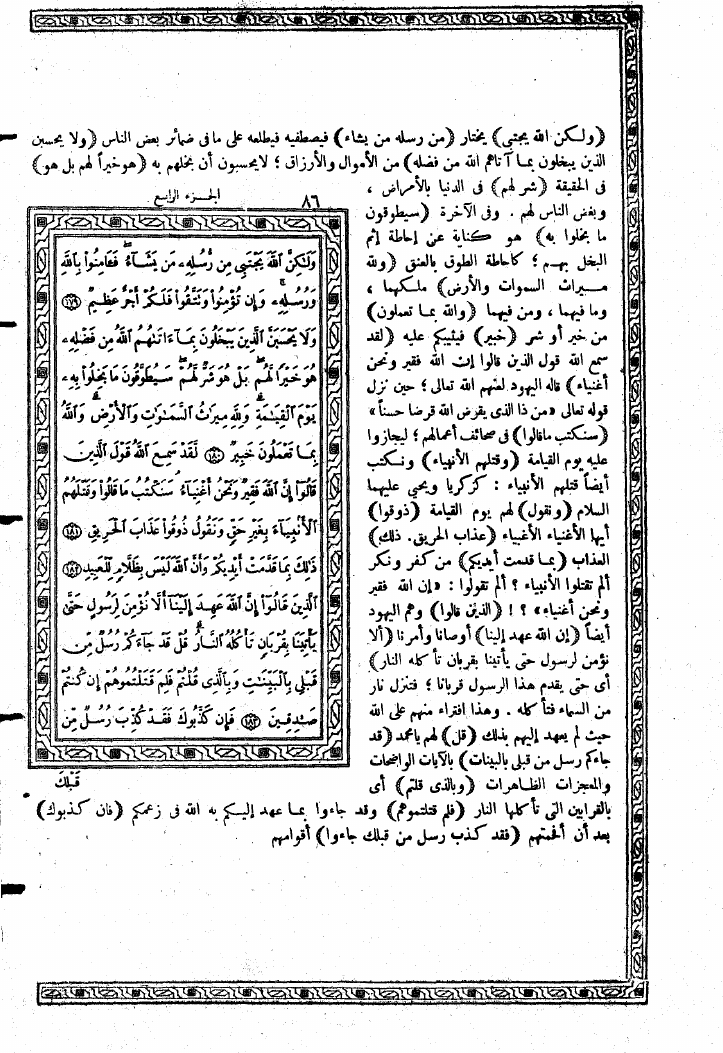 (ولكن الله يجتبي) يختار (من رسله من يشاء) فيصطفيه فيطلعه على ما فى ضمائر بعض الناس (ولا يحسبن
الذين يبخلون بما آتاهم الله من فضله) من الأموال والأرزاق ؛ لايحسبون أن بخلهم به (هو خيراً لهم بل هو)
فى الحقيقة (شر لهم) فى الدنيا بالأمراض ،
وبغض الناس لهم . وفى الآخرة (سيطوقون
ما بخلوا به) هو كناية عن إحاطة إثم
البخل بهم ؛ كاحاطة الطوق بالعنق (ولله
ميراث السموات والأرض) ملكهما ،
وما فيهما ، ومن فيهما (والله بما تعملون)
من خير أو شر (خبير) فيثيبكم عليه (لقد
سمع الله قول الذين قالوا إن الله فقير ونحن
أغنياء) قاله اليهود لعنهم الله تعالى ؛ حين نزل
قوله تعالى «من ذا الذى يقرض الله قرضا حسناً»
(سنكتب ماقالوا) فى صحائف أعمالهم ؛ ليجازوا
عليه يوم القيامة (وقتلهم الأنبياء) ونكتب
أيضاً قتلهم الأنبياء : كزكريا ويحي عليهما
السلام (ونقول) لهم يوم القيامة (ذوقوا)
أيها الأغنياء الأغبياء (عذاب الحريق. ذلك)
العذاب (بما قدمت أيديكم) من كفر ونكر
ألم تقتلوا الأنبياء ؟ ألم تقولوا : «إن الله فقير
ونحن أغنياء» ؟ ! (الذين قالوا) وهم اليهود
أيضاً (إن الله عهد إلينا) أوصانا وأمرنا (ألا
نؤمن لرسول حتى يأتينا بقربان تأكله النار)
أى حتى يقدم هذا الرسول قربانا ؛ فتنزل نار
من السماء فتأكله . وهذا افتراء منهم على الله
حيث لم يعهد إليهم بذلك (قل) لهم يامحمد (قد
جاءكم رسل من قبلى بالبينات) بالآيات الواضحات
والمعجزات الظاهرات (وبالذى قلتم) أى
بالقرابين التى تأكلها النار (فلم قتلتموهم) وقد جاءوا بما عهد إليكم به الله فى زعمكم (فان كذبوك)
بعد أن أفحمتهم (فقد كذب رسل من قبلك جاءوا) أقوامهم
٨٦
الجزء الرابع
وَلَٰكِنَّ ٱللَّهَ يَجْتَبِى مِن رُّسُلِهِۦ مَن يَشَآءُ فَـَٔامِنُوا۟ بِٱللَّهِ
وَرُسُلِهِۦ وَإِن تُؤْمِنُوا۟ وَتَتَّقُوا۟ فَلَكُمْ أَجْرٌ عَظِيمٌ ١٧٩
وَلَا يَحْسَبَنَّ ٱلَّذِينَ يَبْخَلُونَ بِمَآ ءَاتَىٰهُمُ ٱللَّهُ مِن فَضْلِهِۦ
هُوَ خَيْرًا لَّهُم بَلْ هُوَ شَرٌّ لَّهُمْ سَيُطَوَّقُونَ مَا بَخِلُوا۟ بِهِۦ
يَوْمَ ٱلْقِيَٰمَةِ وَلِلَّهِ مِيرَٰثُ ٱلسَّمَٰوَٰتِ وَٱلْأَرْضِ وَٱللَّهُ
بِمَا تَعْمَلُونَ خَبِيرٌ ١٨٠ لَّقَدْ سَمِعَ ٱللَّهُ قَوْلَ ٱلَّذِينَ
قَالُوٓا۟ إِنَّ ٱللَّهَ فَقِيرٌ وَنَحْنُ أَغْنِيَآءُ سَنَكْتُبُ مَا قَالُوا۟ وَقَتْلَهُمُ
ٱلْأَنۢبِيَآءَ بِغَيْرِ حَقٍّ وَنَقُولُ ذُوقُوا۟ عَذَابَ ٱلْحَرِيقِ ١٨١
ذَٰلِكَ بِمَا قَدَّمَتْ أَيْدِيكُمْ وَأَنَّ ٱللَّهَ لَيْسَ بِظَلَّامٍ لِّلْعَبِيدِ ١٨٢
ٱلَّذِينَ قَالُوٓا۟ إِنَّ ٱللَّهَ عَهِدَ إِلَيْنَآ أَلَّا نُؤْمِنَ لِرَسُولٍ حَتَّىٰ
يَأْتِيَنَا بِقُرْبَانٍ تَأْكُلُهُ ٱلنَّارُ قُلْ قَدْ جَآءَكُمْ رُسُلٌ مِّن
قَبْلِى بِٱلْبَيِّنَٰتِ وَبِٱلَّذِى قُلْتُمْ فَلِمَ قَتَلْتُمُوهُمْ إِن كُنتُمْ
صَٰدِقِينَ ١٨٣ فَإِن كَذَّبُوكَ فَقَدْ كُذِّبَ رُسُلٌ مِّن
قَبْلِكَ